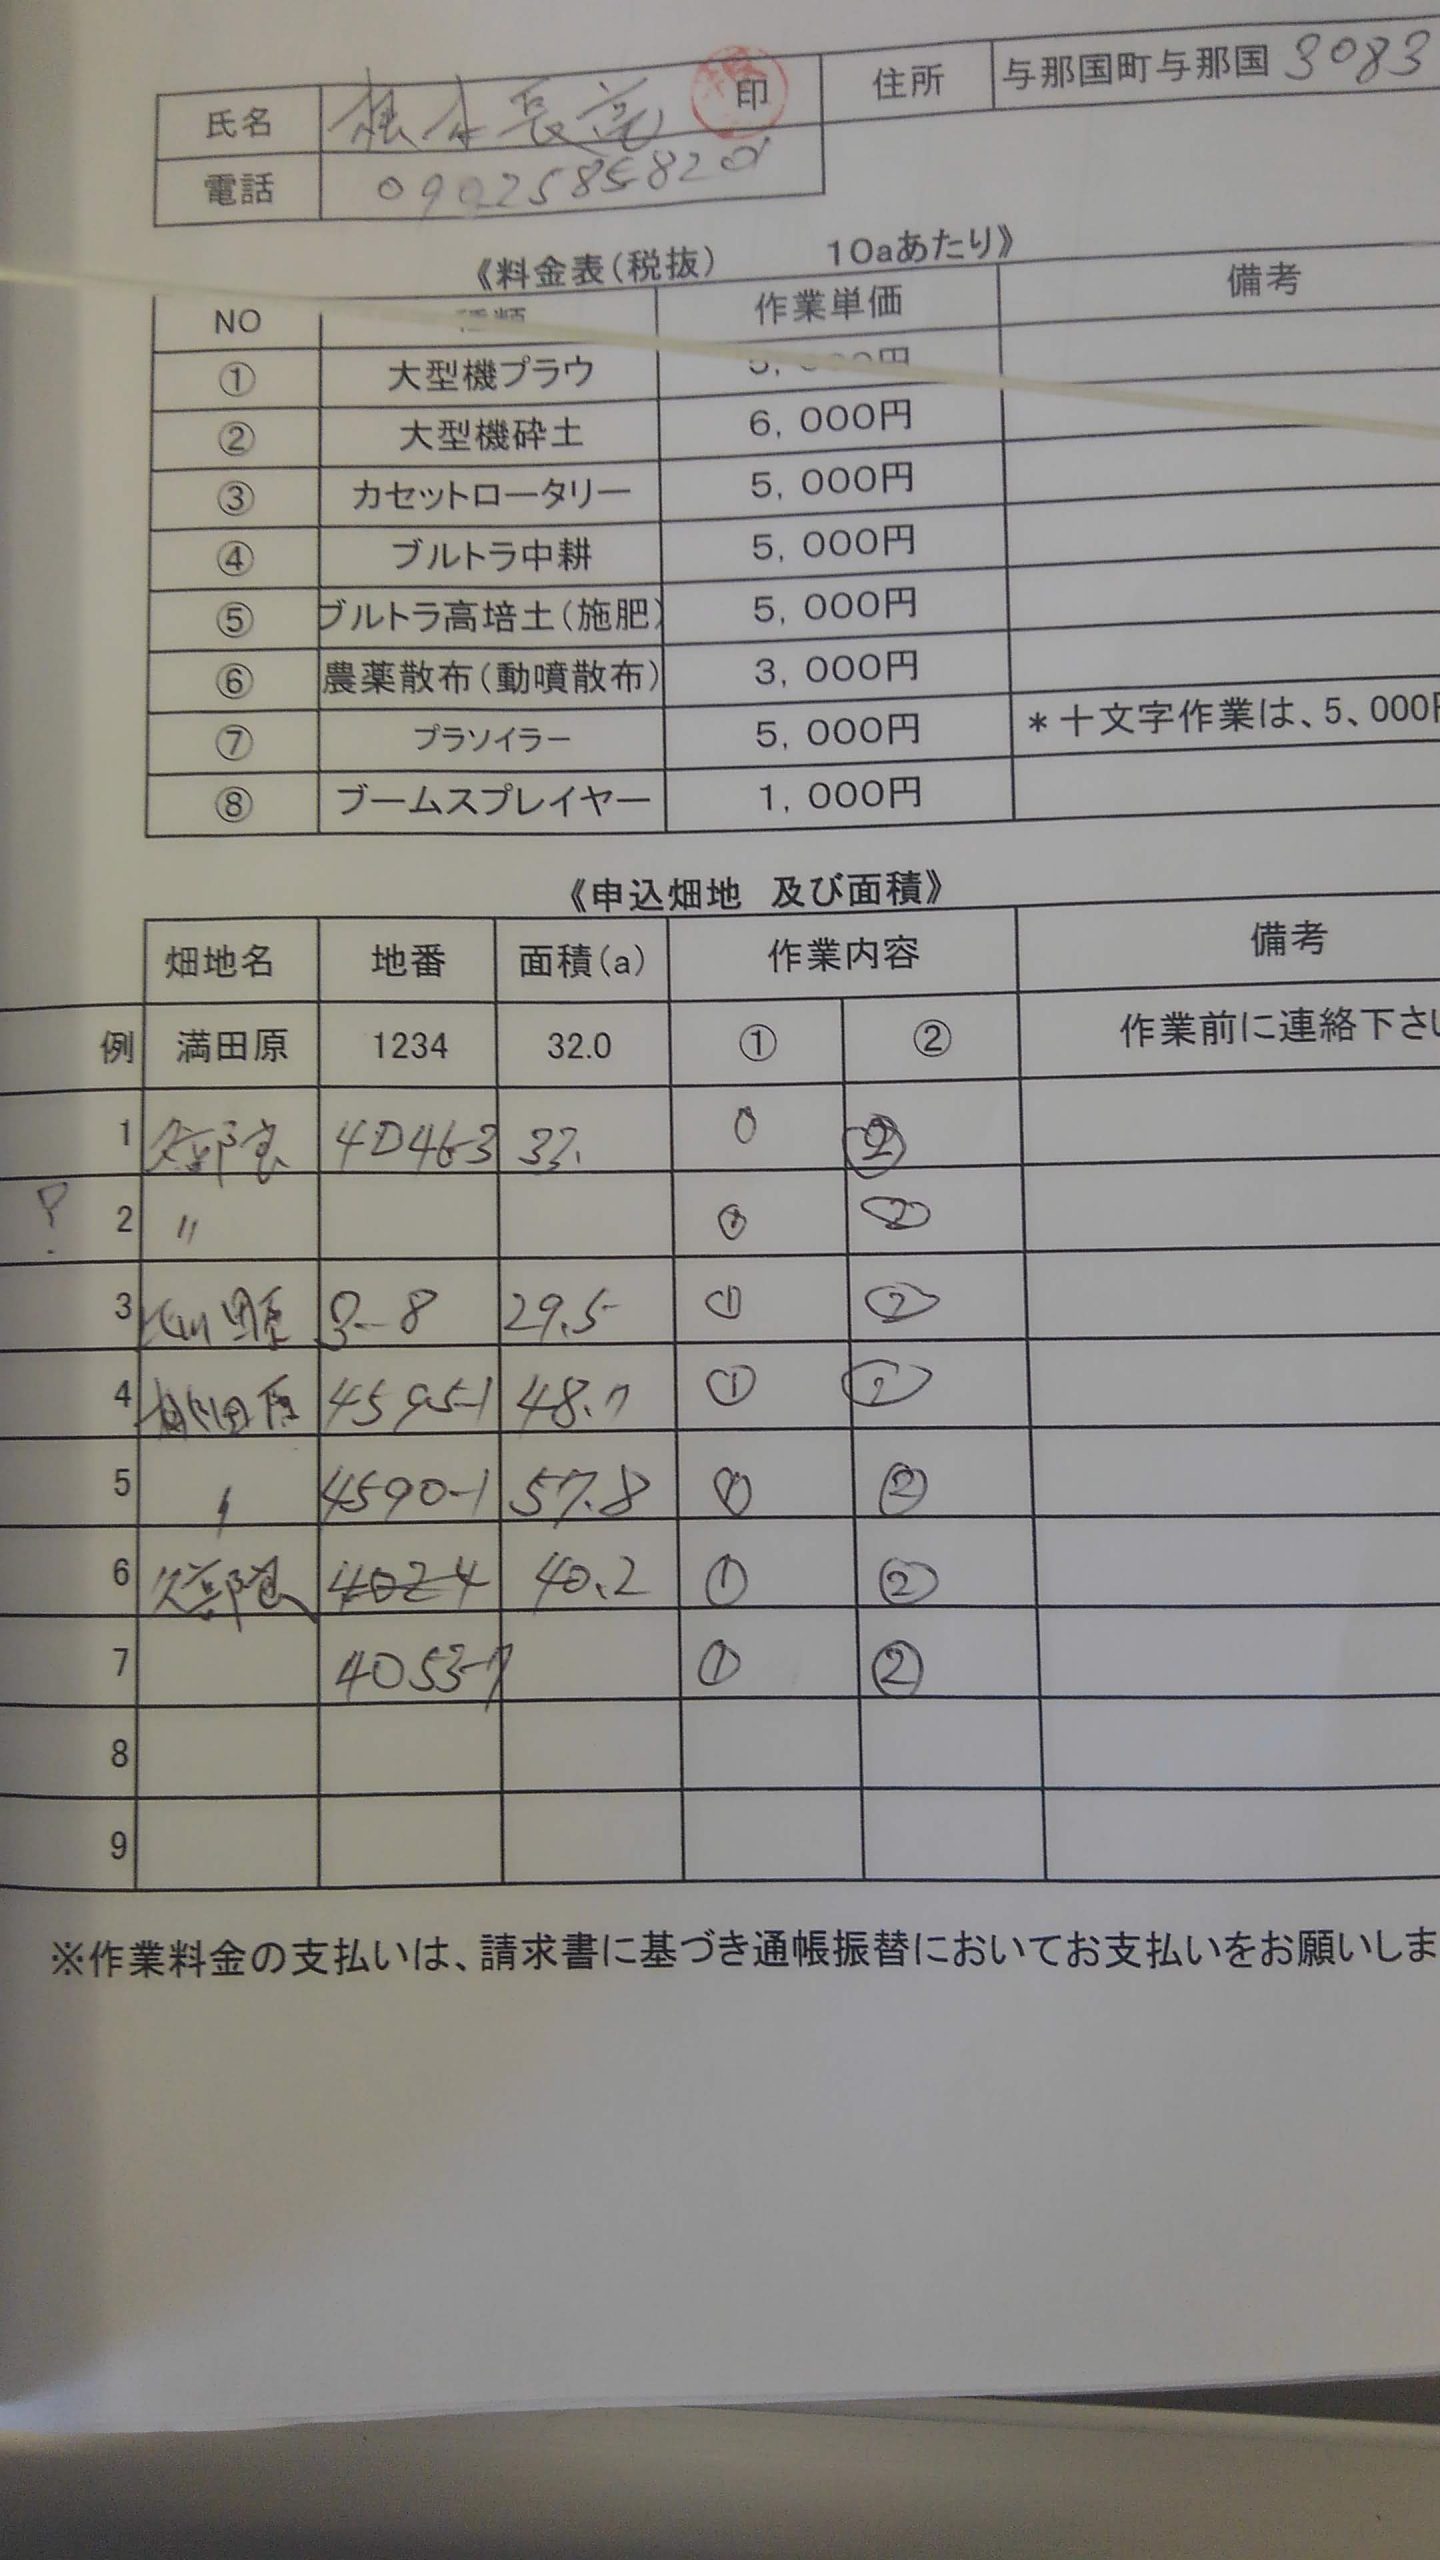 氏名 根本長亮 印 住所 与那国町与那国 3083
電話
《料金表(税抜) 10aあたり》
NO 種類 作業単価 備考
① 大型機プラウ 5,000円
② 大型機砕土 6,000円
③ カセットロータリー 5,000円
④ ブルトラ中耕 5,000円
⑤ ブルトラ高培土(施肥) 5,000円
⑥ 農薬散布(動噴散布) 3,000円
⑦ プラソイラー 5,000円 *十文字作業は、5、000円
⑧ ブームスプレイヤー 1,000円
《申込畑地 及び面積》
畑地名 地番 面積(a) 作業内容 備考
例 満田原 1234 32.0 ① ② 作業前に連絡下さい
1 久部良 ②
? 2 〃 ① ②
3 29.5 ① ②
4 4595-1 48.7 ① ②
5 4590-1 57.8 ① ②
6 久部良 4024 40.2 ① ②
7 4053-7 ① ②
8
9
※作業料金の支払いは、請求書に基づき通帳振替においてお支払いをお願いしま